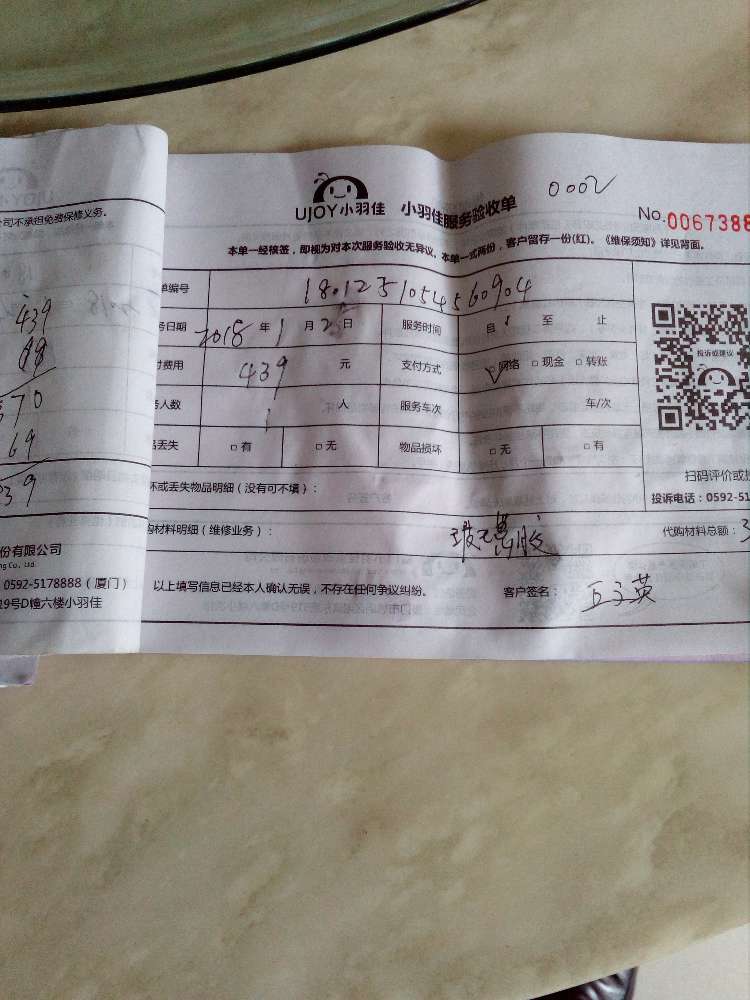 公司不承担免费保修义务。
439
88
570
69
439
份有限公司
ng Co., Ltd.
0592-5178888（厦门）
19号D幢六楼小羽佳
UJOY小羽佳 小羽佳服务验收单 0002
No.0067388
本单一经核签，即视为对本次服务验收无异议。本单一式两份，客户留存一份(红)。《维保须知》详见背面。
单编号
务日期 2018 年 1 月 2 日 服务时间 自 至 止
付费用 439 元 支付方式 网络 □ 现金 □ 转账
务人数 1 人 服务车次 车/次
品丢失 □ 有 □ 无 物品损坏 □ 无 □ 有
坏或丢失物品明细（没有可不填）：
购材料明细（维修业务）： 玻璃胶 代购材料总额：3
以上填写信息已经本人确认无误，不存在任何争议纠纷。 客户签名：
投诉或建议
扫码评价或投
投诉电话：0592-51